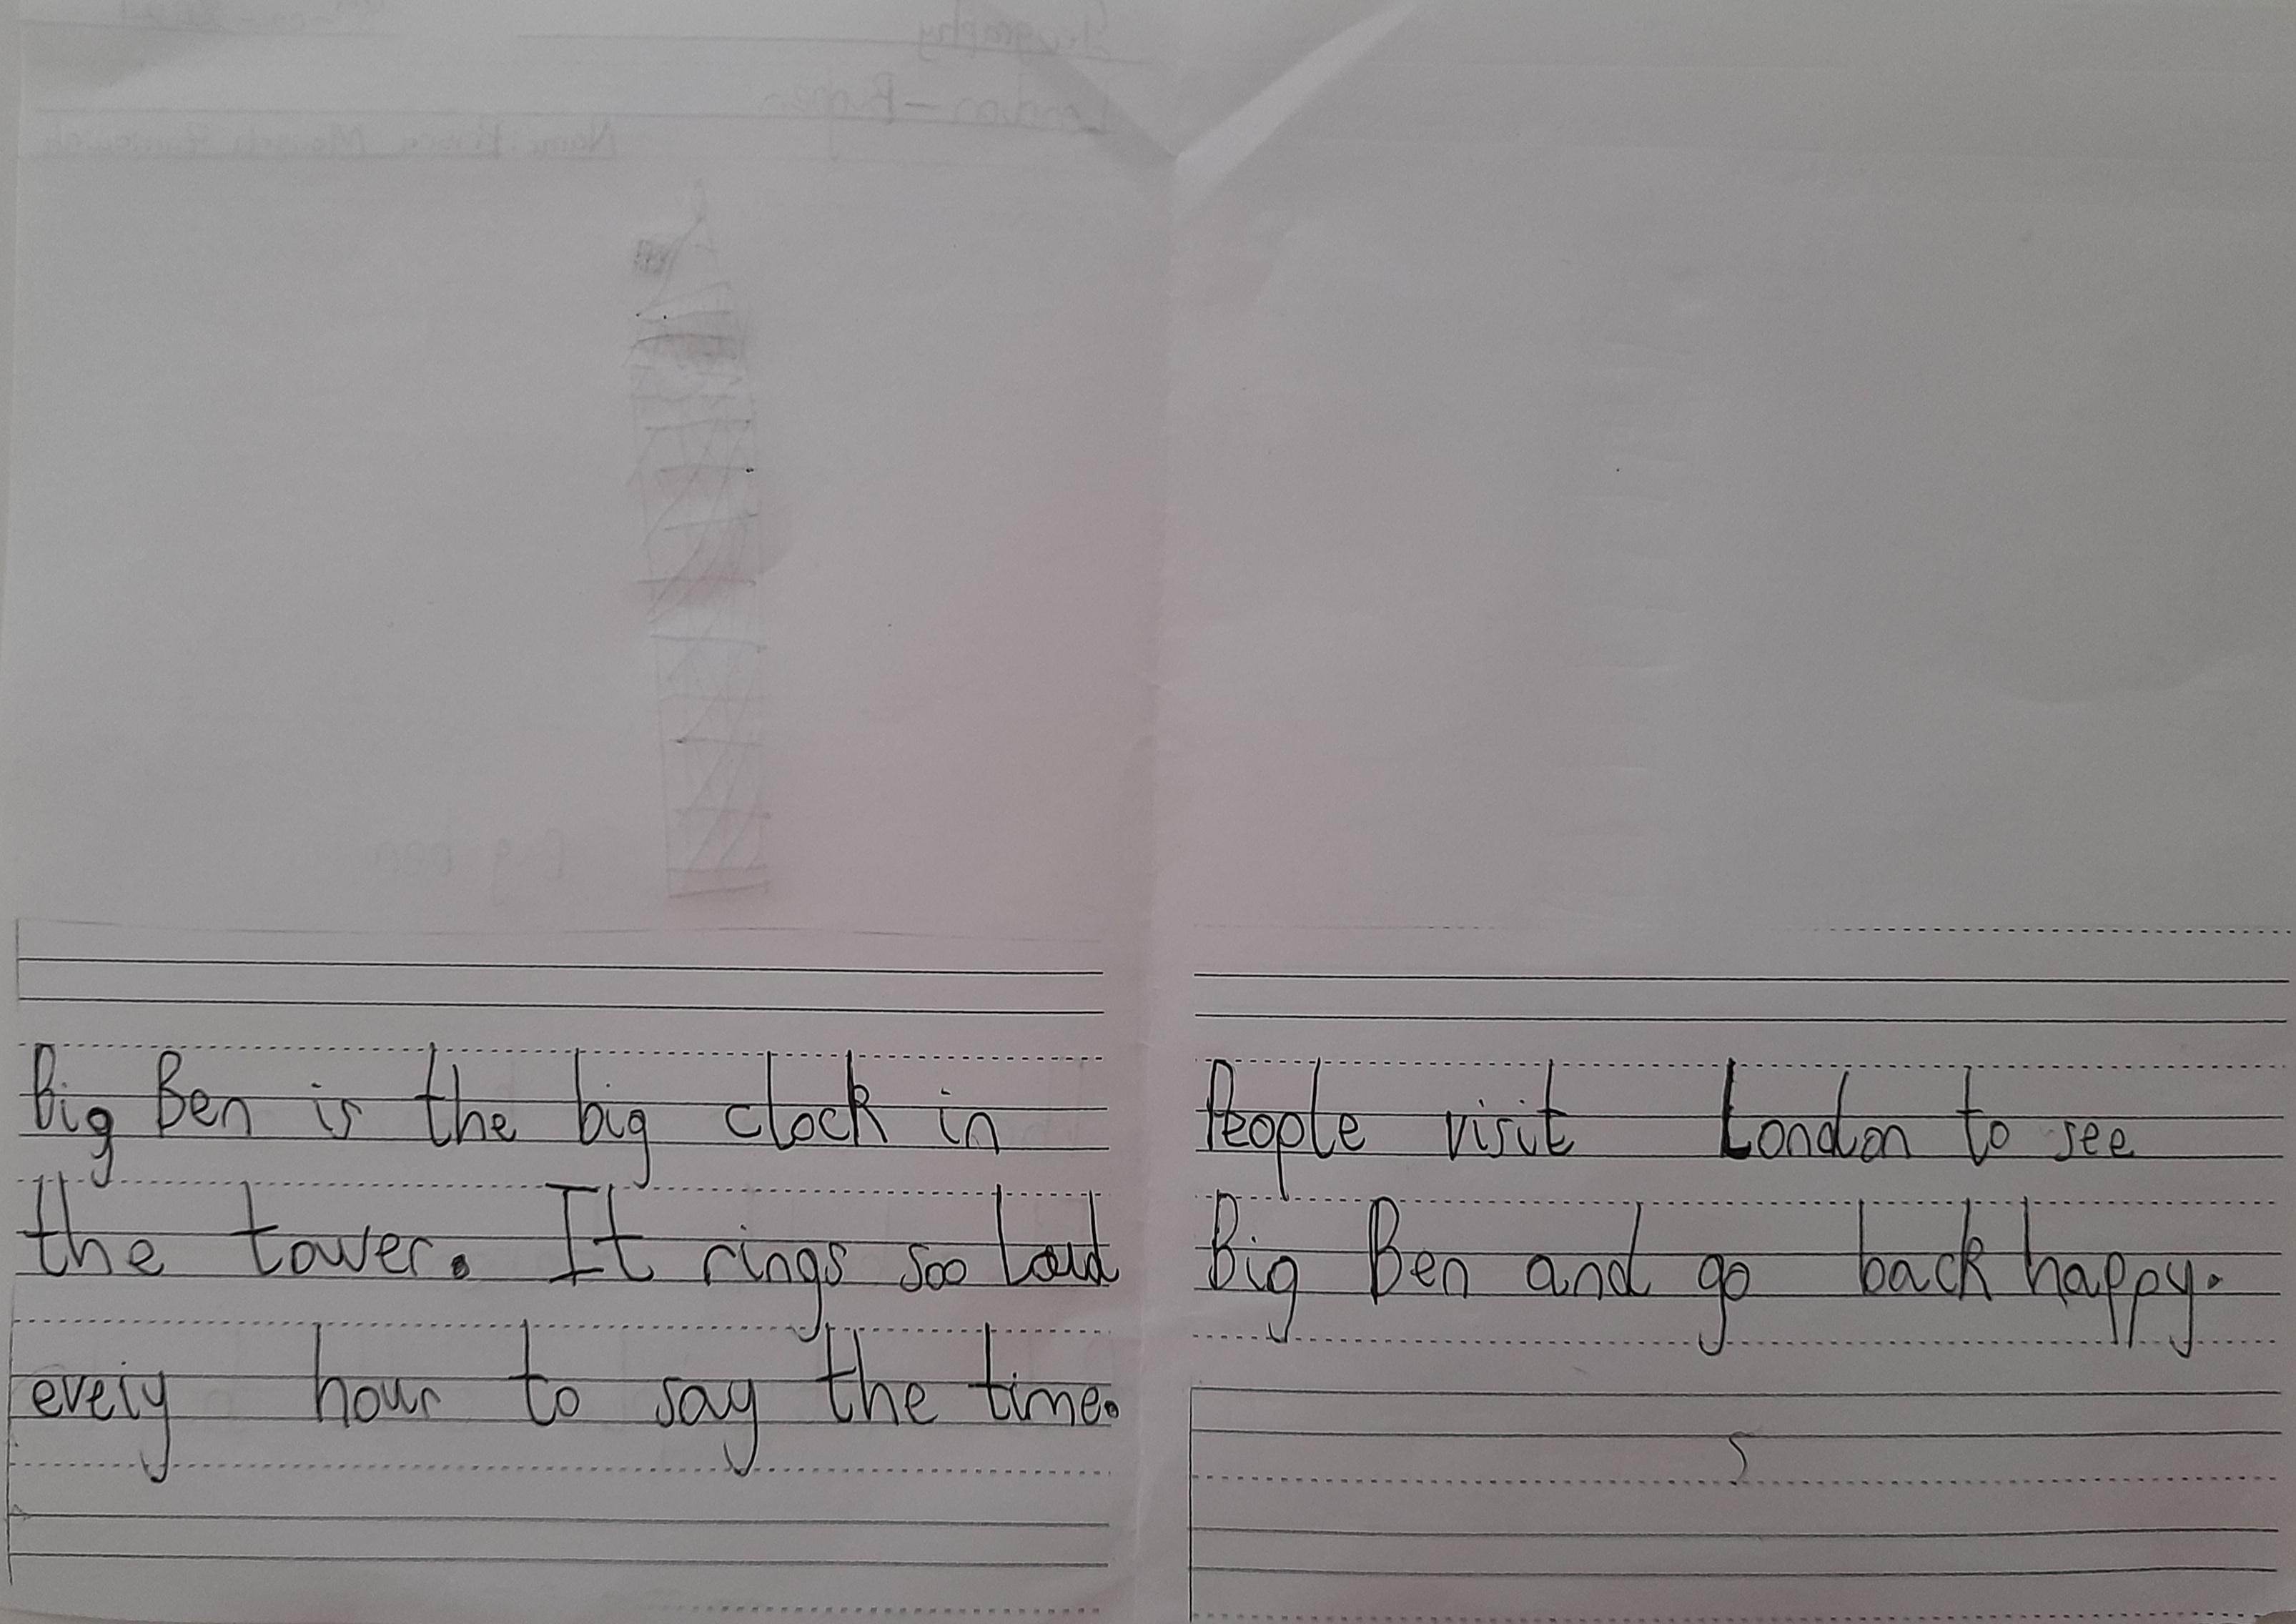 Geography
London - Bigben
Big Ben is the big clock in
the tower. It rings soo loud
every hour to say the time.
People visit London to see
Big Ben and go back happy.
Big ben